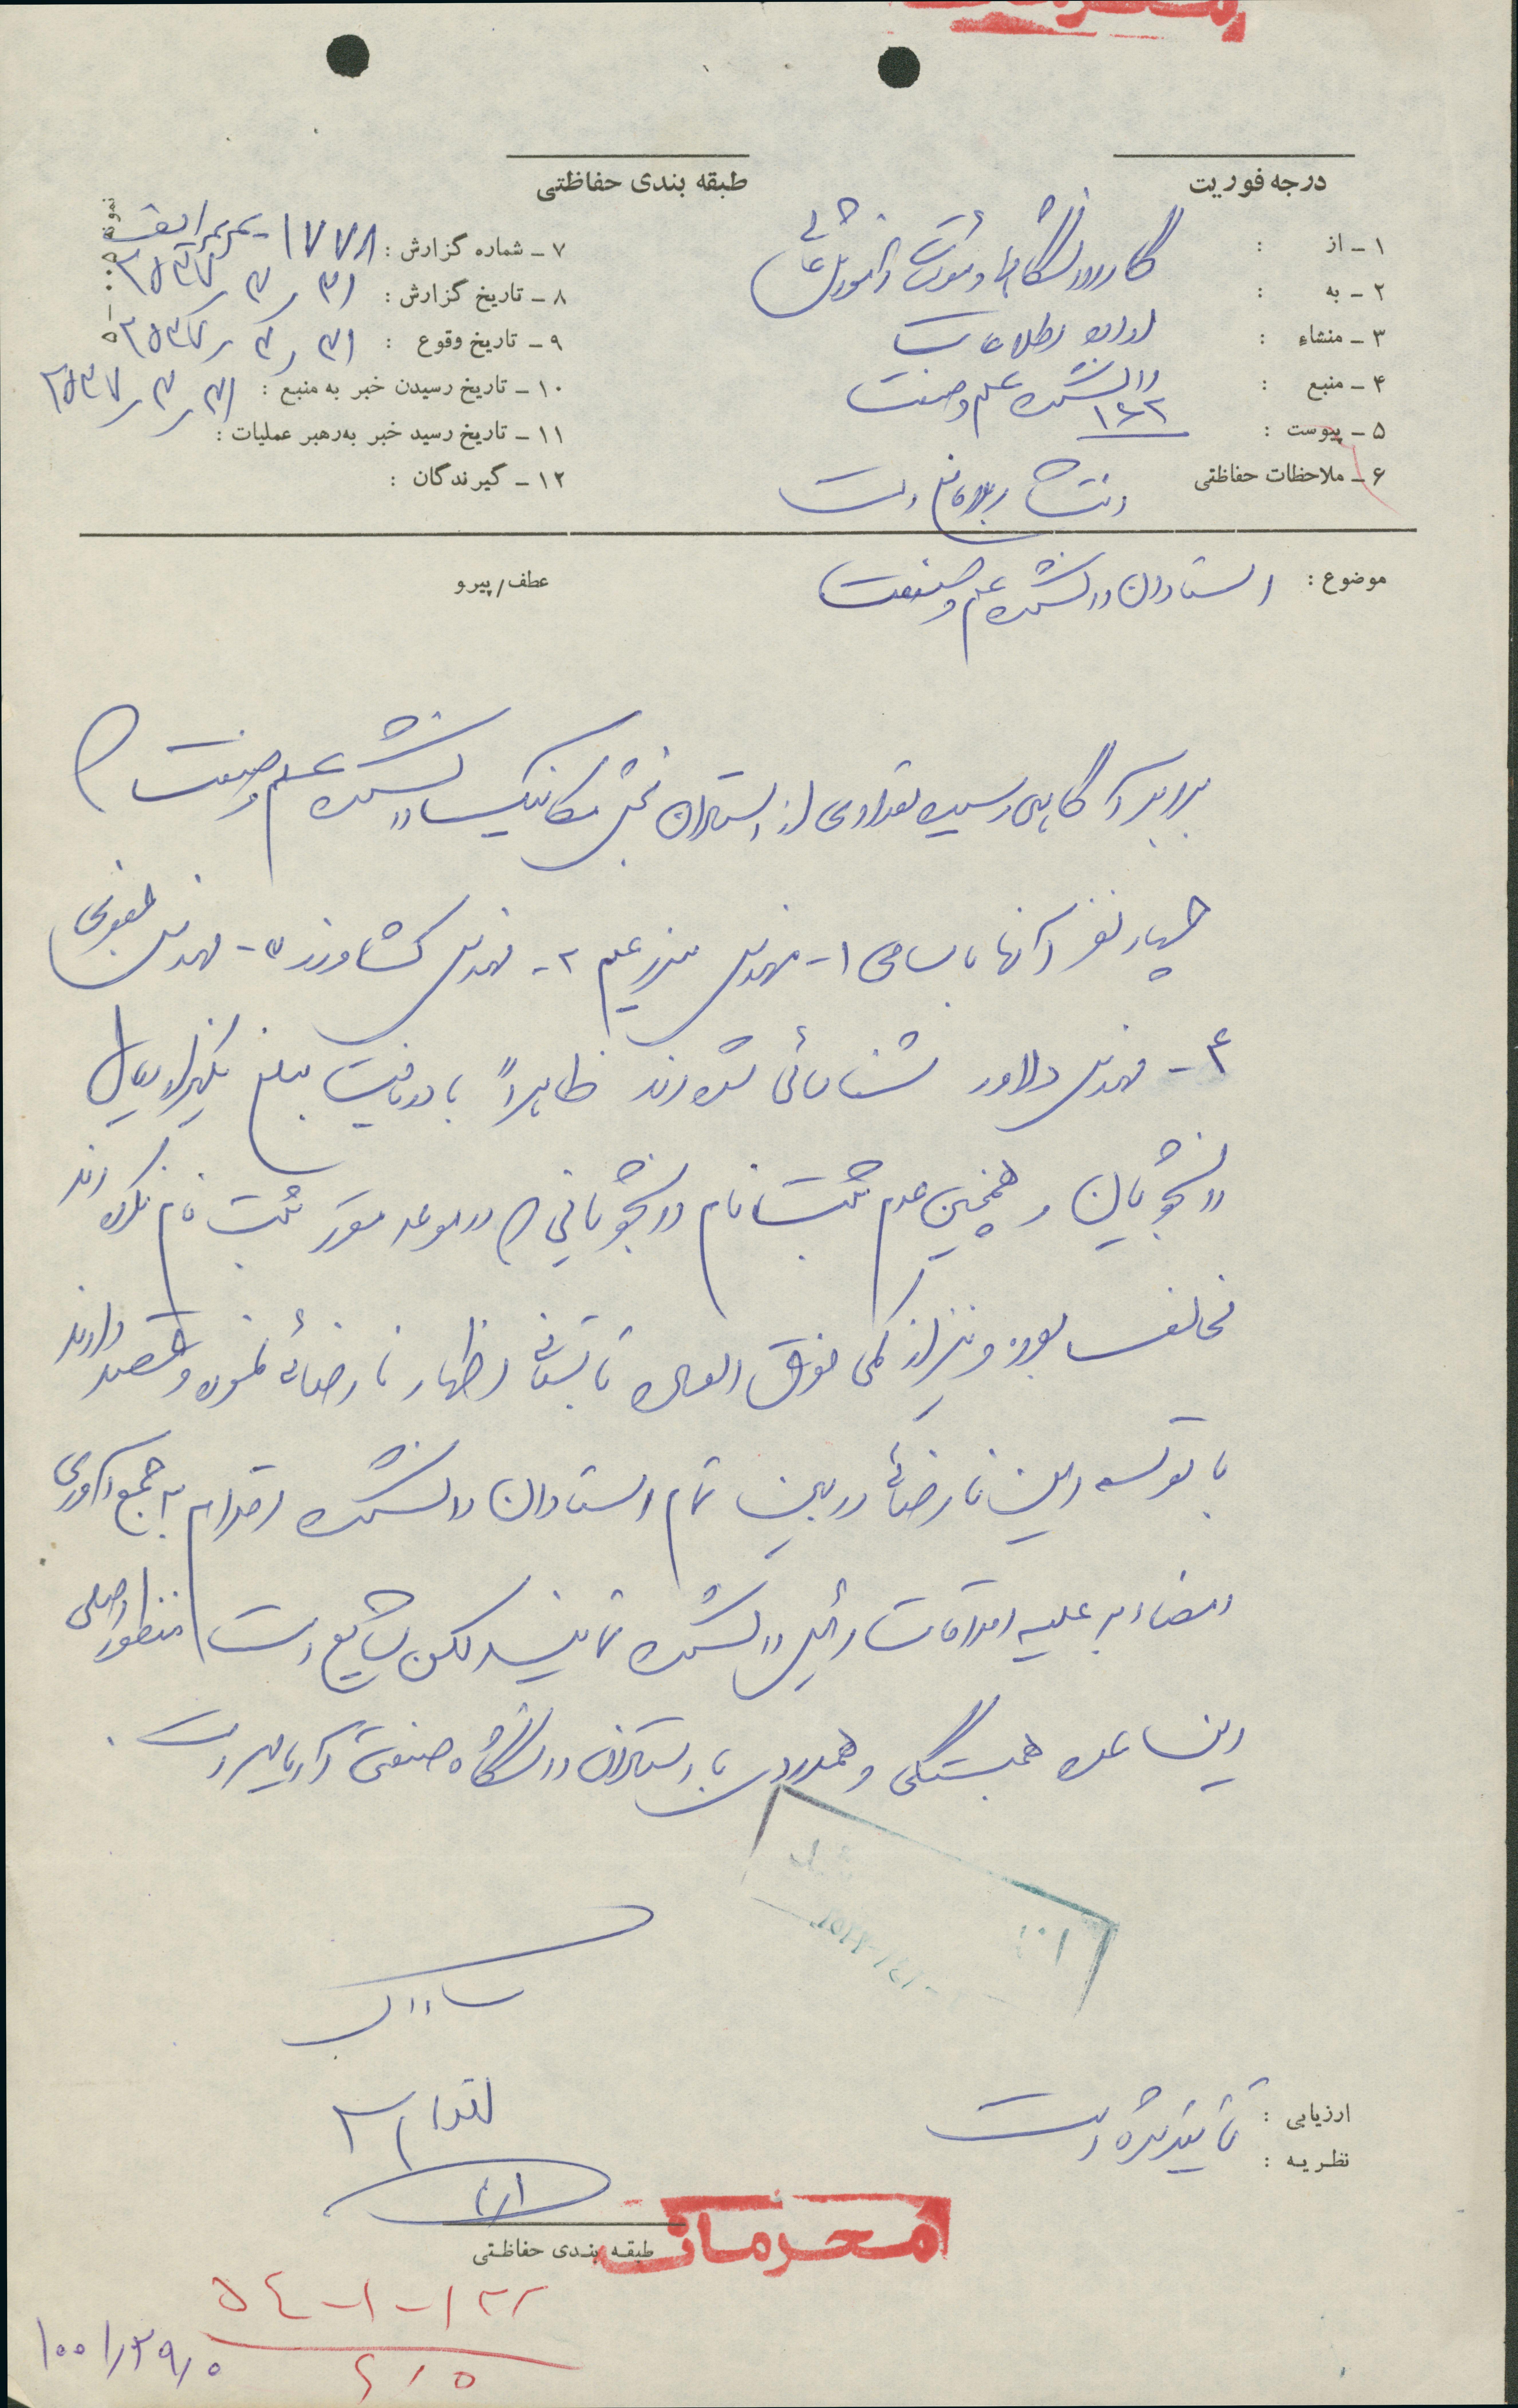 محرمانه
درجه فوریت
طبقه بندی حفاظتی
۱ـ از : گارد دانشگاهها و مؤسسات آموزش عالی
۲ـ به : اداره اطلاعات
۳ـ منشاء : دانشکده علم و صنعت
۴ـ منبع : ۱۶۲
۵ـ پیوست :
۶ـ ملاحظات حفاظتی انتشار بلامانع است
۷ـ شماره گزارش : ۱۷۷۸
۸ـ تاریخ گزارش : ۲۵۳۷/۳/۳۱
۹ـ تاریخ وقوع : ۲۵۳۷/۳/۳۱
۱۰ـ تاریخ رسیدن خبر به منبع : ۲۵۳۷/۳/۳۱
۱۱ـ تاریخ رسید خبر به‌رهبر عملیات :
۱۲ـ گیرندگان :
موضوع : استادان دانشکده علم و صنعت
عطف/پیرو
برابر آگاهی رسیده تعدادی از استادان بخش مکانیک دانشکده علم و صنعت که
چهار نفر آنها باسامی ۱- مهندس ۲- مهندس کشاورز ۳- مهندس
۴- مهندس دلاور شناسائی شده‌اند ظاهراً با دریافت مبلغ یکهزار ریال
دانشجویان و همچنین عدم ثبت نام دانشجویانی که در موعد مقرر ثبت نام نکرده‌اند
مخالف بوده و نیز از کمی فوق العاده تابستانی اظهار نارضائی نموده و قصد دارند
با توسعه این نارضائی در بین تمام استادان دانشکده اقدام به جمع آوری
امضاء بر علیه اقدامات رئیس دانشکده نمایند لکن شایع است منظور اصلی
این عده همبستگی و همدردی با استادان دانشگاه صنعتی آریامهر است.
ساواک
اقدام
ارزیابی : تائید شده است
نظریه :
طبقه بندی حفاظتی
محرمانه